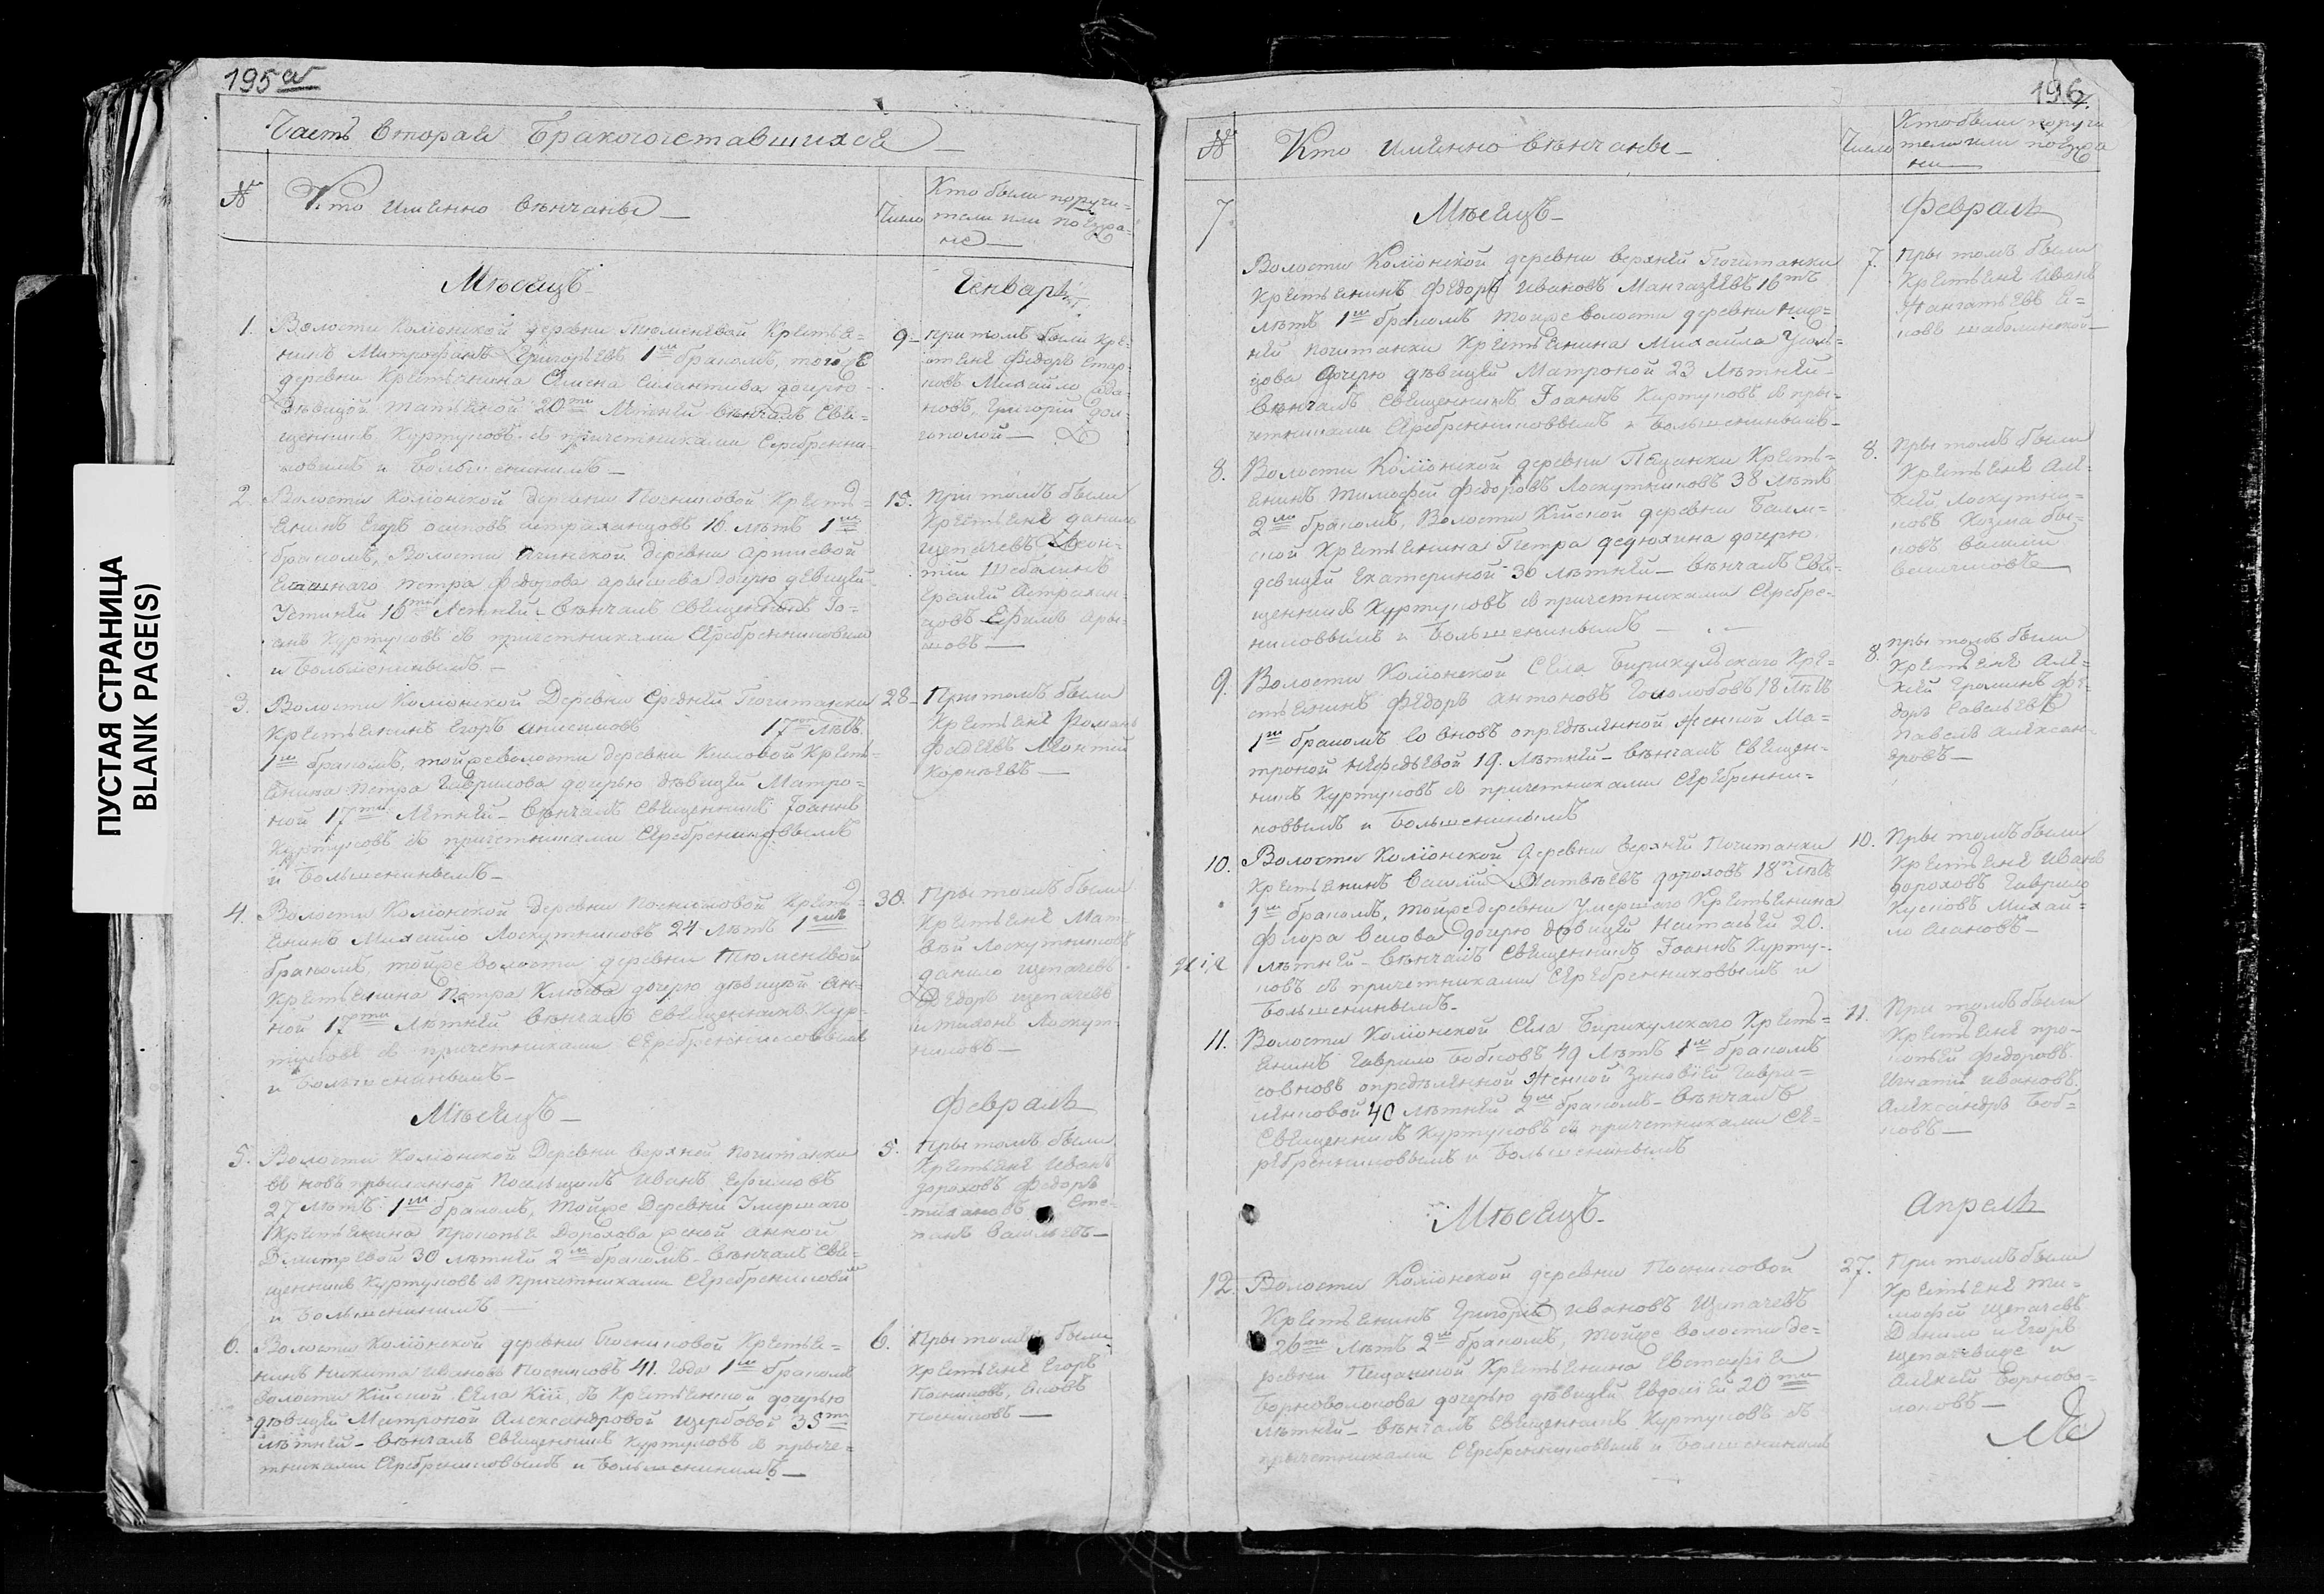 195 об
Часть вторая Бракосочетавшихся
№
Кто именно венчаны
Число
Кто были поручи=
тели или поезжа=
не
Месяцъ
Генварь
1.
Волости Коліонской деревни Тюменевой Крестья=
нинъ Митрофанъ Григорьевъ 1мъ бракомъ, тойже
деревни Крестьянина Силантива дочерью
девицой Татьяной 20ти летней венчалъ Свя=
щенникъ Куртуковъ съ причетниками Серебренни=
ковымъ и Большенинымъ
9
при томъ были кре=
стьяне Федоръ
Михайло
Григорій дол=
гополой
2.
Волости Коліонской деревни Постниковой Кресть=
янинъ Егоръ Осиповъ Астраханцовъ 18 летъ 1мъ
бракомъ, Волости деревни Арышевой
Петра Федорова Арышева дочерью девицей
Устиньей летней венчалъ священникъ Іо=
анъ Куртуковъ съ причетниками Серебренниковымъ
и Большенинымъ
15.
при томъ были
Крестьяне Данило
Щепачевъ Леон=
тій Шабалинъ
Еремей Астрахан=
цовъ Ефимъ Ары=
шовъ
3.
Волости Коліонской Деревни Средней Почитанки
Крестьянинъ Егоръ Анисимовъ 17ти летъ
1мъ бракомъ, тойже волости деревни Кресть=
янина Петра Гаврилова дочерью девицей Матро=
ной 17ти летней венчалъ священникъ Іоаннъ
Куртуковъ съ причетниками Серебрениковымъ
и Большенинымъ
28
При томъ были
Крестьяне Романъ
Фадеевъ Леонтій
Корневъ
4.
Волости Коліонской деревни Постниковой Кресть=
янинъ Михайло Лоскутниковъ 24 летъ 1мъ
бракомъ, тойже волости деревни Тюменевой
Крестьянина Петра дочерью девицой Ан=
ной 17ти летней венчалъ священникъ Кур=
туковъ съ причетниками Серебренниковымъ
и Большенинымъ
30.
При томъ были
Крестьяне Мат=
вей Лоскутниковъ
Данило Щепачевъ
Федоръ Щепачевъ
и Тихонъ Лоскут=
никовъ
Месяцъ
Февраль
5.
Волости Коліонской Деревни Верхней Почитанки
въ новь присланной Поселщикъ Иванъ Ефимовъ
27 летъ 1мъ бракомъ, тойже Деревни Умершаго
Крестьянина Прокопья Дорохова женой Анной
Дмитревой 30 летней 2мъ бракомъ венчалъ свя=
щенникъ Куртуковъ съ причетниками Серебрениковымъ
и Большенинымъ
5.
При томъ были
Крестьяне Иванъ
Дороховъ Федоръ
Тихановъ Сте=
панъ Васильевъ
6.
Волости Коліонской деревни Постниковой Крестья=
нинъ Никита Ивановъ Постниковъ 41. года 1мъ бракомъ
Волости Кійской села Кіи съ Крестьянской дочерью
девицей Матроной Александровой Щербовой 35ти
летней венчалъ священникъ Куртуковъ съ приче=
тниками Серебренниковымъ и Большенинымъ
6.
При томъ были
Крестьяне Егоръ
Постниковъ, Яковъ
Постниковъ
196
№
Кто именно венчаны
Число
Кто были поручи
тели или поезжа
не
Месяцъ
Февраль
7
Волости Коліонской деревни верхней Почитанки
Крестьянинъ Федоръ Ивановъ Мангазеевъ 16ть
летъ 1мъ бракомъ тойже волости деревни ниж=
ней почитанки Крестьянина Михайла
дочерью девицей Матроной 23 летней
венчалъ священникъ Іоаннъ Куртуковъ съ при=
четниками Серебренниковымъ и Большенинымъ
7.
При томъ были
Крестьяне Иванъ
Я=
ковъ Шаболинской
8.
Волости Коліонской деревни Пещанки Кресть=
янинъ Тимофей Федоровъ Лоскутниковъ 38 летъ
2мъ бракомъ, Волости Кійской деревни Баим=
ской Крестьянина Петра Дедюхина дочерью
девицей Екатериной 30 летней венчалъ Свя=
щенникъ Куртуковъ съ причетниками Серебре=
никовымъ и Большенинымъ
8.
При томъ были
Крестьяне Але=
ксей Лоскутни=
ковъ Козма Бы=
ковъ Василий
9.
Волости Коліонской Села Бирикульскаго Кре=
стьянинъ Федоръ Антоновъ Голобовъ 18 летъ
1мъ бракомъ со вновь определенной женкой Ма=
троной Нефедьевой 19. летней венчалъ Священ=
никъ Куртуковъ съ причетниками Серебренни=
ковымъ и Большенинымъ
8.
при томъ были
Крестьяне Але=
ксей Громинъ Фе=
доръ Савельевъ
Павелъ Алексан=
дровъ
10.
Волости Коліонской Деревни Верхней Почитанки
Крестьянинъ Василій Матвеевъ Дороховъ 18ти летъ
1мъ бракомъ, тойже деревни Умершаго Крестьянина
Флора Белова дочерью девицей Настасьей 20.
летней венчалъ священникъ Іоаннъ Курту=
ковъ съ причетниками Серебренниковымъ и
Большенинымъ
10.
При томъ были
Крестьяне Иванъ
Дороховъ Гаврило
Кусковъ Михай=
ло
11.
Волости Коліонской Села Бирикулскаго Кресть=
янинъ Гаврило Бобковъ 49 летъ 1мъ бракомъ
совновь определенной Женкой Зиновіей Гаври=
ленковой 40 летней 2мъ бракомъ венчалъ
Священникъ Куртуковъ съ причетниками Се=
ребренниковымъ и Большенинымъ
11.
При томъ были
Крестьяне Про=
копей Федоровъ
Игнатій Ивановъ
Александръ Боб=
ковъ
Месяцъ
Апрель
12.
Волости Коліонской деревни Постниковой
Крестьянинъ Григорій Ивановъ Щепачевъ
26ти летъ 2мъ бракомъ, тойже волости де=
ревни Пещанской Крестьянина Евстафія
Борноволокова дочерью девицей Евдокіей 20ти
летней венчалъ священникъ Куртуковъ съ
причетниками Серебренниковымъ и Большенинымъ
27.
При томъ были
Крестьяне Ти=
мофей Щепачевъ
Данило и Егоръ
Щепачевы же и
Алексей Борново=
локовъ
ПУСТАЯ СТРАНИЦА
BLANK PAGE(S)